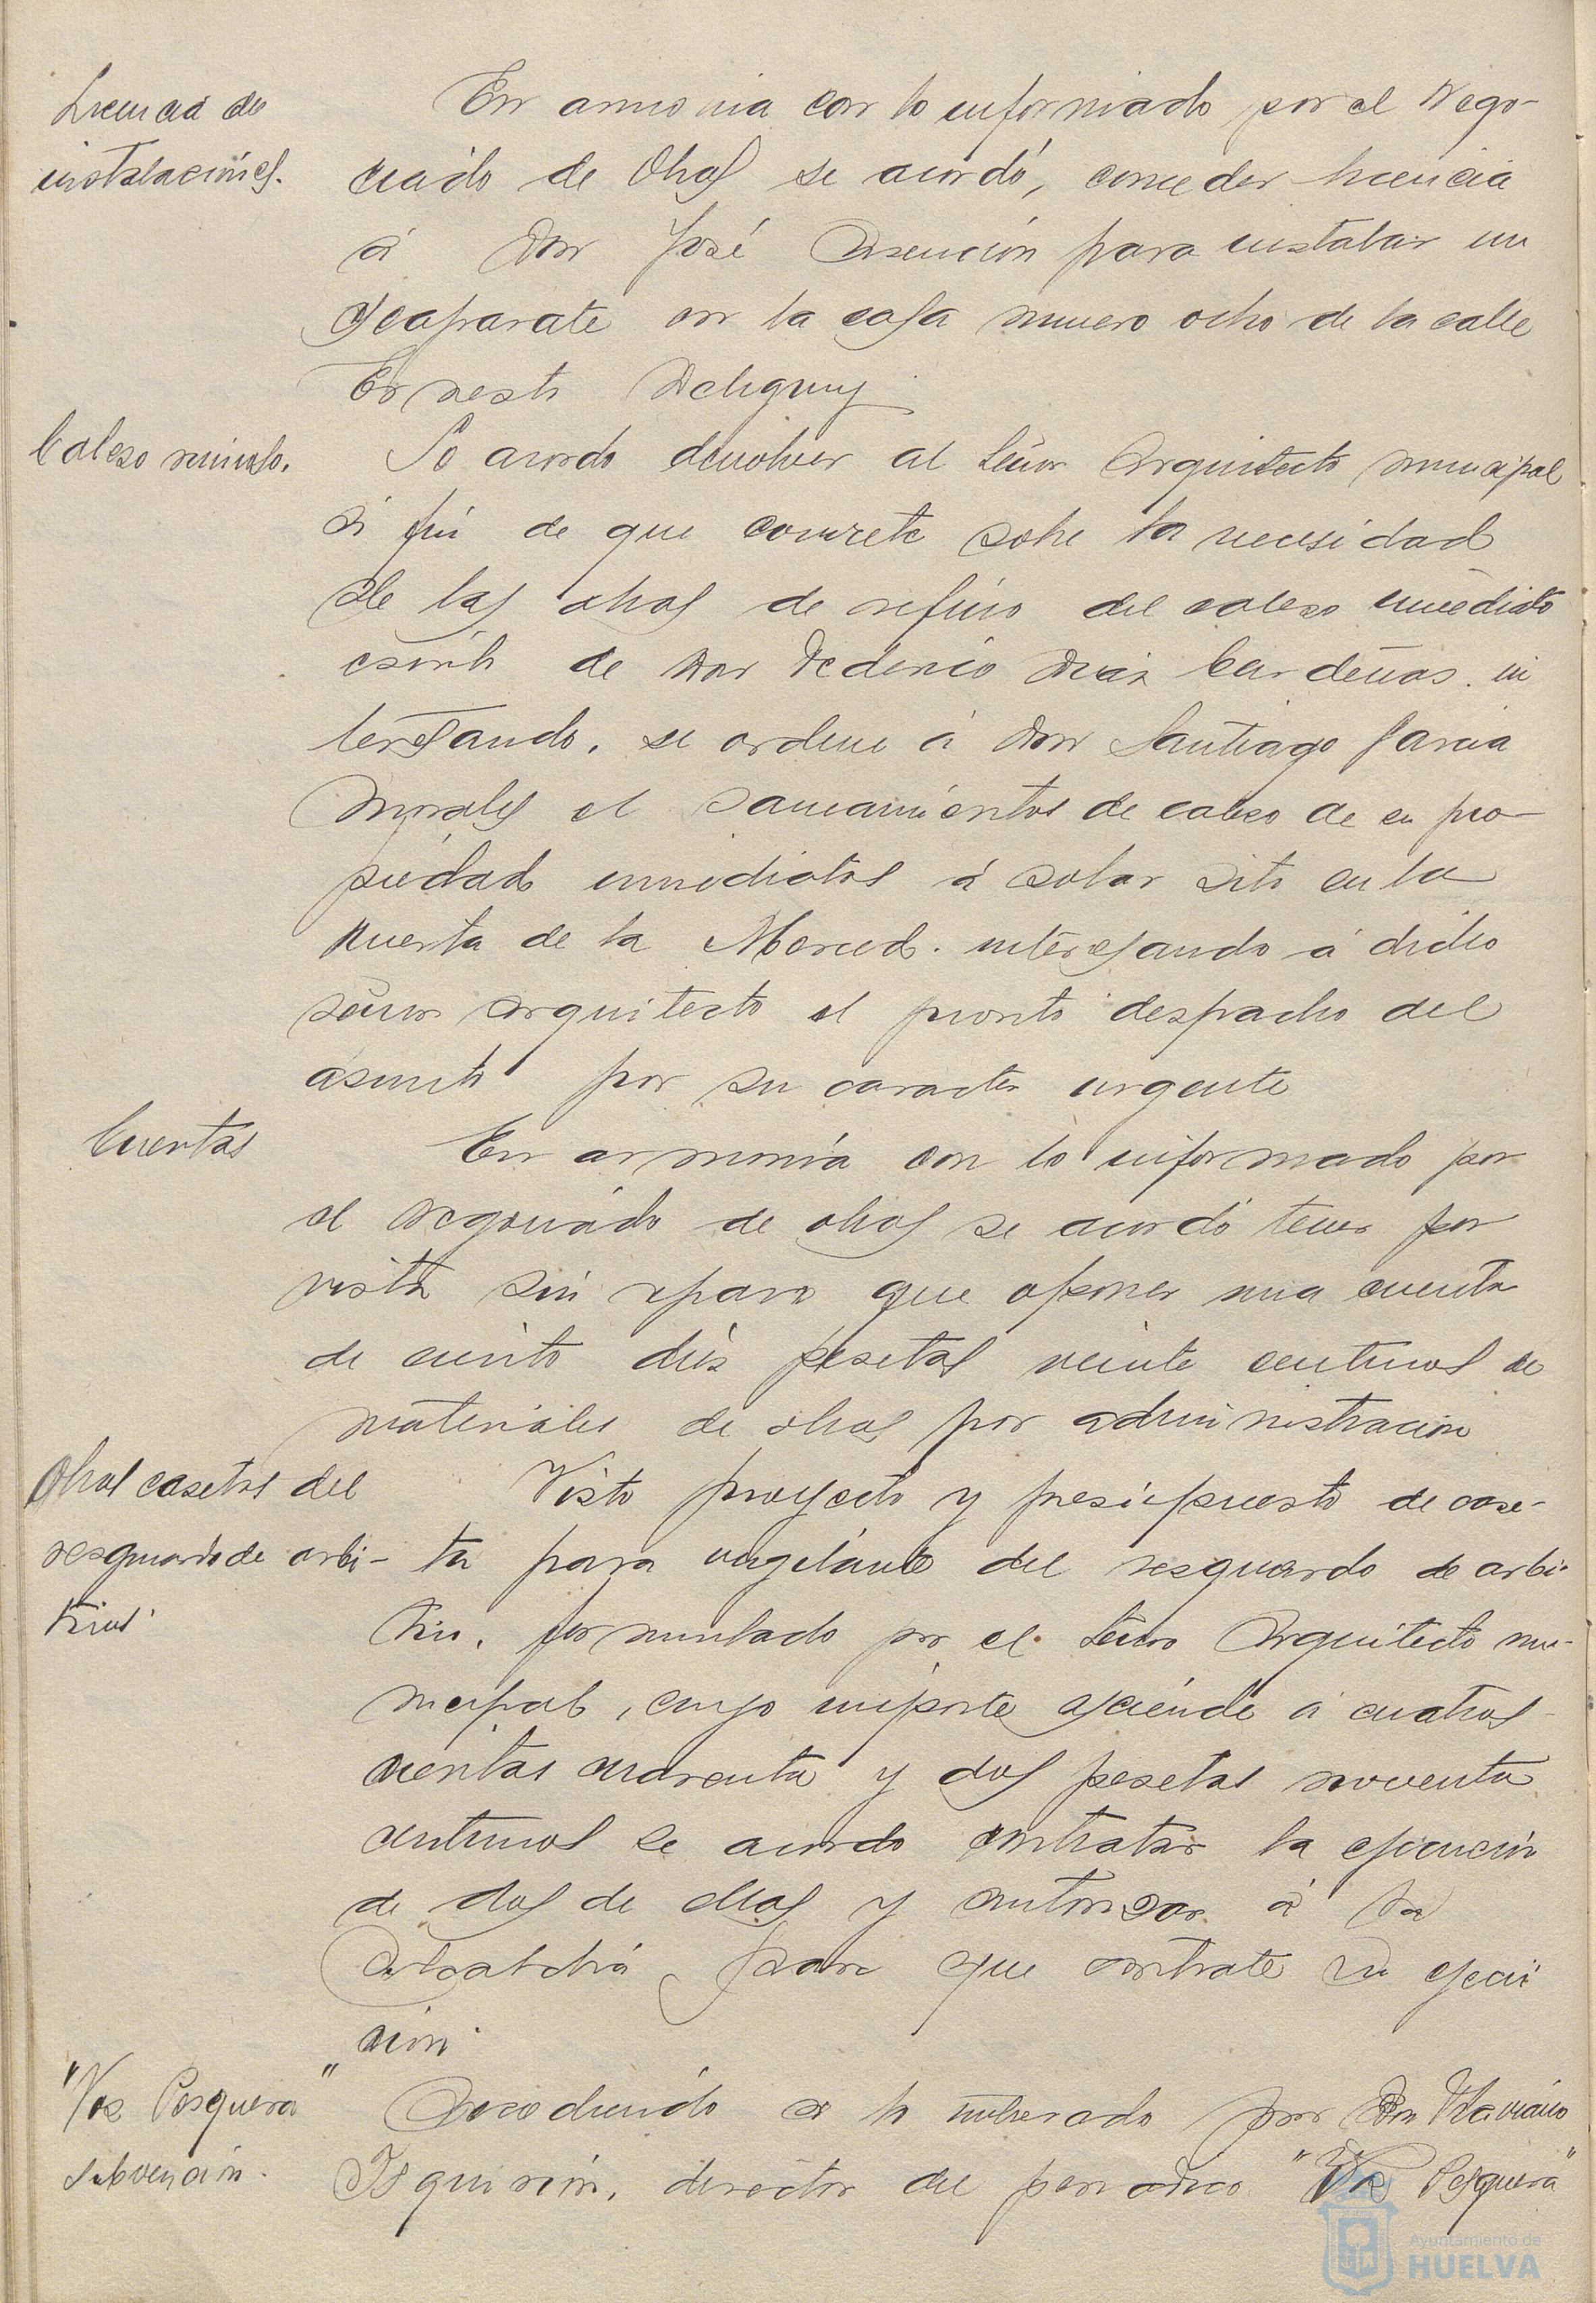 Licencia de
instalaciones.
En armonia con lo informado por el Nego-
ciado de Obras se acordó, conceder licencia
á Don José Asención para instalar un
escaparate en la casa numero ocho de la calle
Ernesto Deligny
Cabezo
Se acordo devolver al Señor Arquitecto municipal
á fin de que concrete sobre la necesidad
de las obras de refino del cabezo inmediato
escrito de Don Federico Diaz Cardeñas. in
teresando, se ordene á Don Santiago Garcia
Morales el saneamientos de cabezo de su pro-
piedad inmediatos á solar sito en la
Huerta de la Merced. interesando á dicho
señor arquitecto el pronto despacho del
asunto por su caracter urgente
Cuentas
En armonía con lo informado por
el negociado de obras se acordó tener por
vista sin reparo que oponer una cuenta
de ciento diez pesetas veinte centimos de
materiales de obras por administracion
Obras casetas del
resguardo de arbi-
trios
Visto proyecto y presupuesto de case-
ta para vigilante del resguardo de arbi-
trio, formulado por el Señor Arquitecto mu-
nicipal, cuyo importe asciende á cuatros-
cientas cuarenta y dos pesetas noventa
centimos se acordo contratar la ejecucion
de dos de ellas y autorizar á la
Alcaldia para que contrate su ejecu
cion.
"Voz Pesquera"
subvencion.
Accediendo a lo interado por Don Flaviano
Izquierdo, director del periodico "Voz Pesquera"
Ayuntamiento de
HUELVA